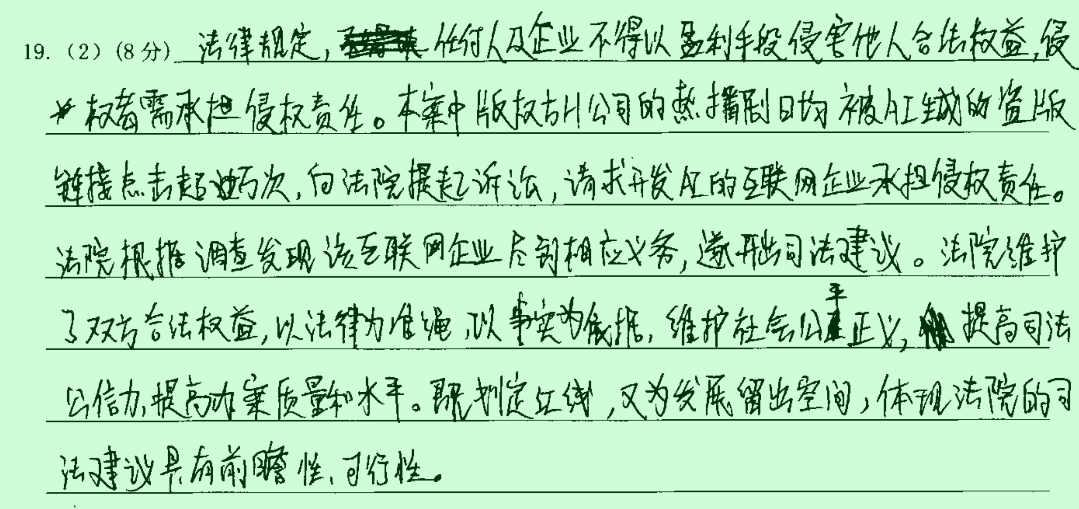 19.（2）（8分）法律规定，任何人及企业不得以盈利手段侵害他人合法权益，侵
权者需承担侵权责任。本案中版权方H公司的热播剧日均被AI生成的盗版
链接点击超过万次，向法院提起诉讼，请求开发AI的互联网企业承担侵权责任。
法院根据调查发现该互联网企业尽到相应义务，遂开出司法建议。法院维护
了双方合法权益，以法律为准绳，以事实为依据，维护社会公平正义，提高司法
公信力，提高办案质量和水平。既划定红线，又为发展留出空间，体现法院的司
法建议具有前瞻性、可行性。